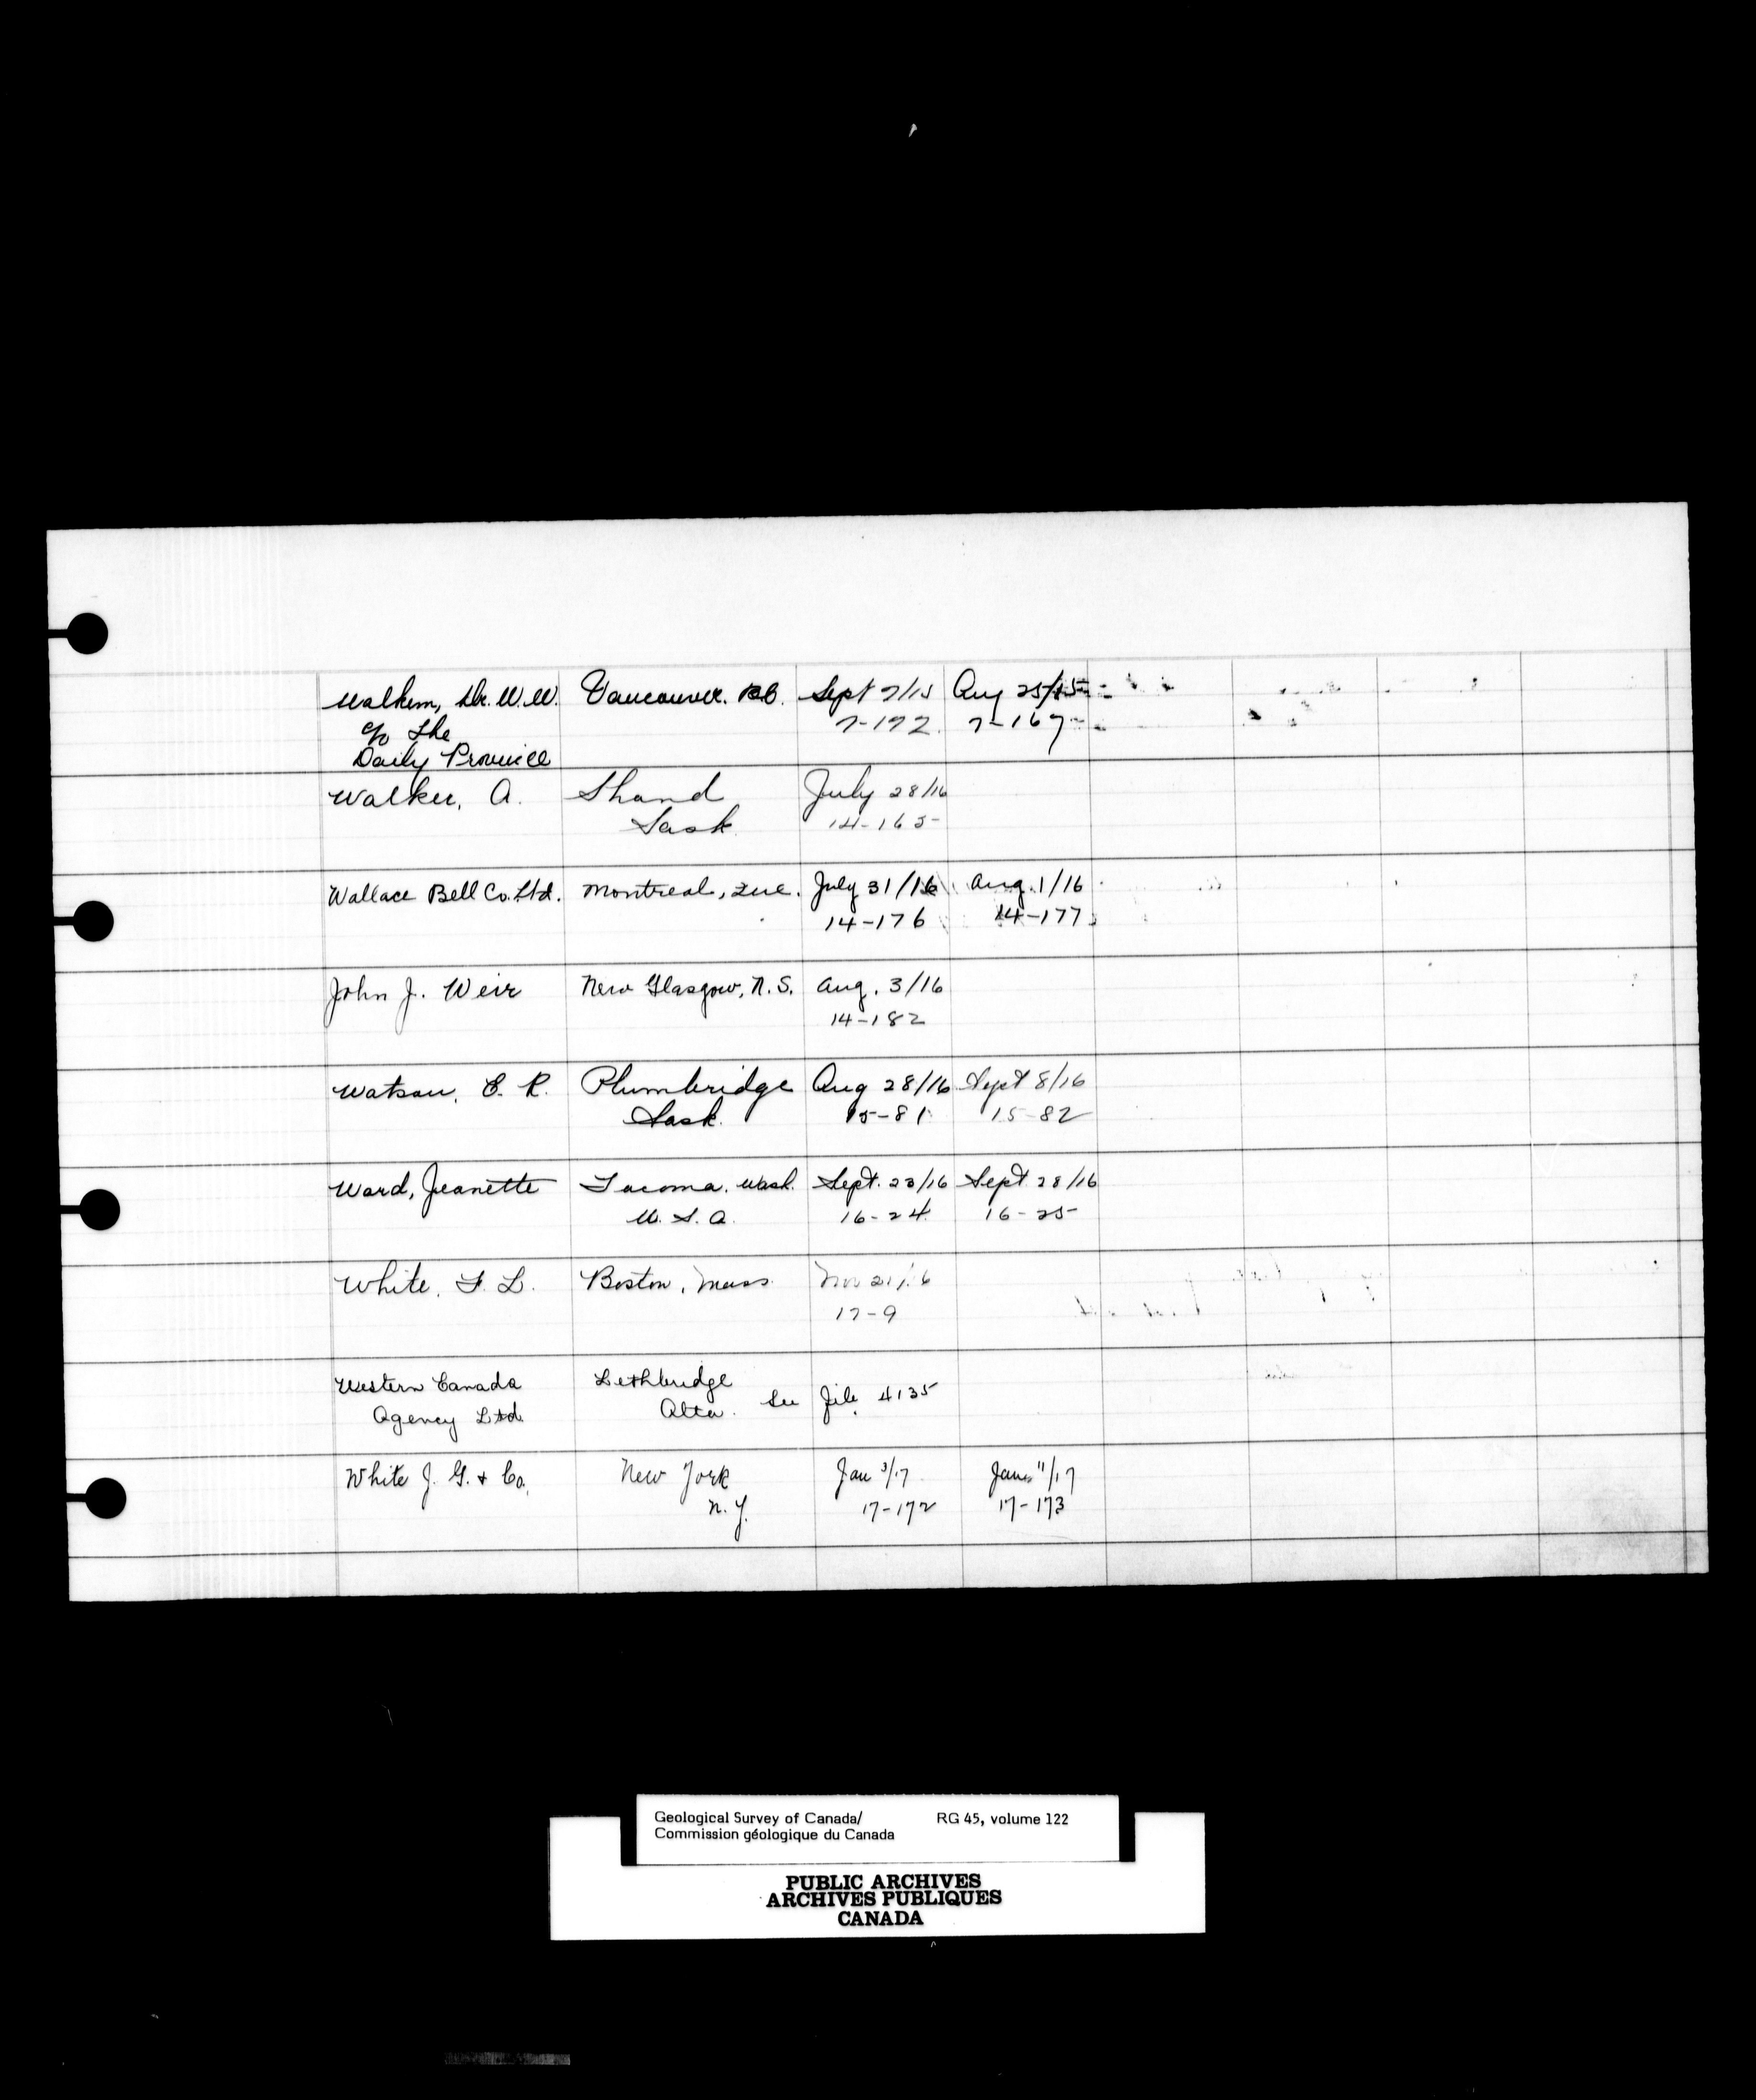 Walkem, Dr. W. W. Vancouver. B.C. Sept 7/15 Aug 25/15
c/o The 7-172 7-167
Daily Province
Walker, A. Shand July 28/16
Sask. 14-165
Wallace Bell Co. Ltd. Montreal, Que. July 31/16 Aug. 1/16
14-176 14-177
John J. Weir New Glasgow, N.S. Aug. 3/16
14-182
Watson, E. R. Plumbridge Aug 28/16 Sept 8/16
Sask. 15-81 15-82
Ward, Jeanette Tacoma, Wash. Sept. 23/16 Sept 28/16
U. S. A. 16-24 16-25
White, F. L. Boston, Mass. Nov 21/16
17-9
Western Canada Lethbridge
Agency Ltd. Alta. See file 4135
White J. G. & Co. New York Jan 3/17 Jan 11/17
N.Y. 17-172 17-173
Geological Survey of Canada/ RG 45, volume 122
Commission géologique du Canada
PUBLIC ARCHIVES
ARCHIVES PUBLIQUES
CANADA